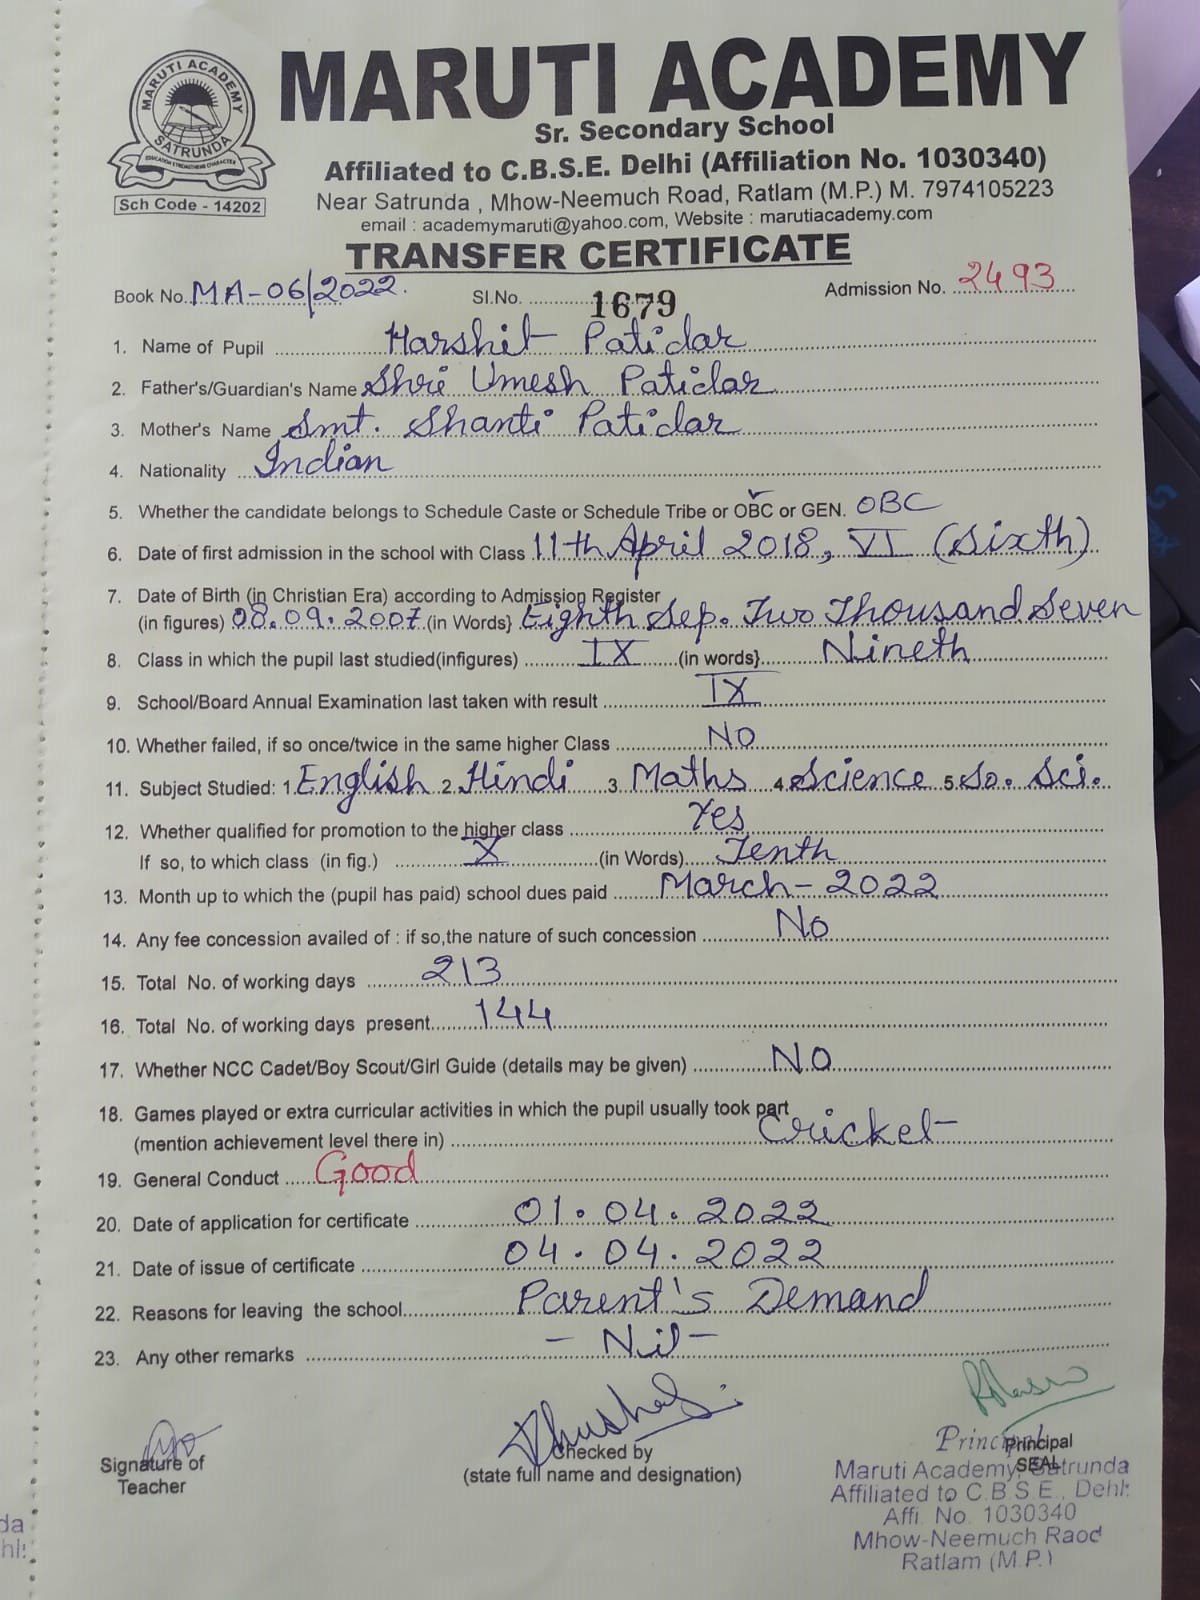 MARUTI ACADEMY
SATRUNDA
EDUCATION STRENGTHENS CHARACTER
Sch Code - 14202
MARUTI ACADEMY
Sr. Secondary School
Affiliated to C.B.S.E. Delhi (Affiliation No. 1030340)
Near Satrunda , Mhow-Neemuch Road, Ratlam (M.P.) M. 7974105223
email : academymaruti@yahoo.com, Website : marutiacademy.com
TRANSFER CERTIFICATE
Book No. MA-06/2022. Sl.No. 1679 Admission No. 2493
1. Name of Pupil Harshit Patidar
2. Father's/Guardian's Name Shri Umesh Patidar
3. Mother's Name Smt. Shanti Patidar
4. Nationality Indian
5. Whether the candidate belongs to Schedule Caste or Schedule Tribe or OBC or GEN. OBC
6. Date of first admission in the school with Class 11th April 2018, VI (Sixth)
7. Date of Birth (in Christian Era) according to Admission Register
(in figures) 08.09.2007 (in Words} Eighth Sep. Two Thousand Seven
8. Class in which the pupil last studied(infigures) IX (in words} Nineth
9. School/Board Annual Examination last taken with result IX
10. Whether failed, if so once/twice in the same higher Class No
11. Subject Studied: 1. English 2. Hindi 3. Maths 4. Science 5. So. Sci.
12. Whether qualified for promotion to the higher class Yes
If so, to which class (in fig.) X (in Words) Tenth
13. Month up to which the (pupil has paid) school dues paid March-2022
14. Any fee concession availed of : if so,the nature of such concession No
15. Total No. of working days 213
16. Total No. of working days present 144
17. Whether NCC Cadet/Boy Scout/Girl Guide (details may be given) NO
18. Games played or extra curricular activities in which the pupil usually took part
(mention achievement level there in) Cricket
19. General Conduct Good
20. Date of application for certificate 01.04.2022
21. Date of issue of certificate 04.04.2022
22. Reasons for leaving the school Parent's Demand
23. Any other remarks - Nil -
Signature of
Teacher
Checked by
(state full name and designation)
Principal
SEAL
Principal
Maruti Academy, Satrunda
Affiliated to C.B.S.E., Dehli
Affi. No. 1030340
Mhow-Neemuch Raod
Ratlam (M.P.)